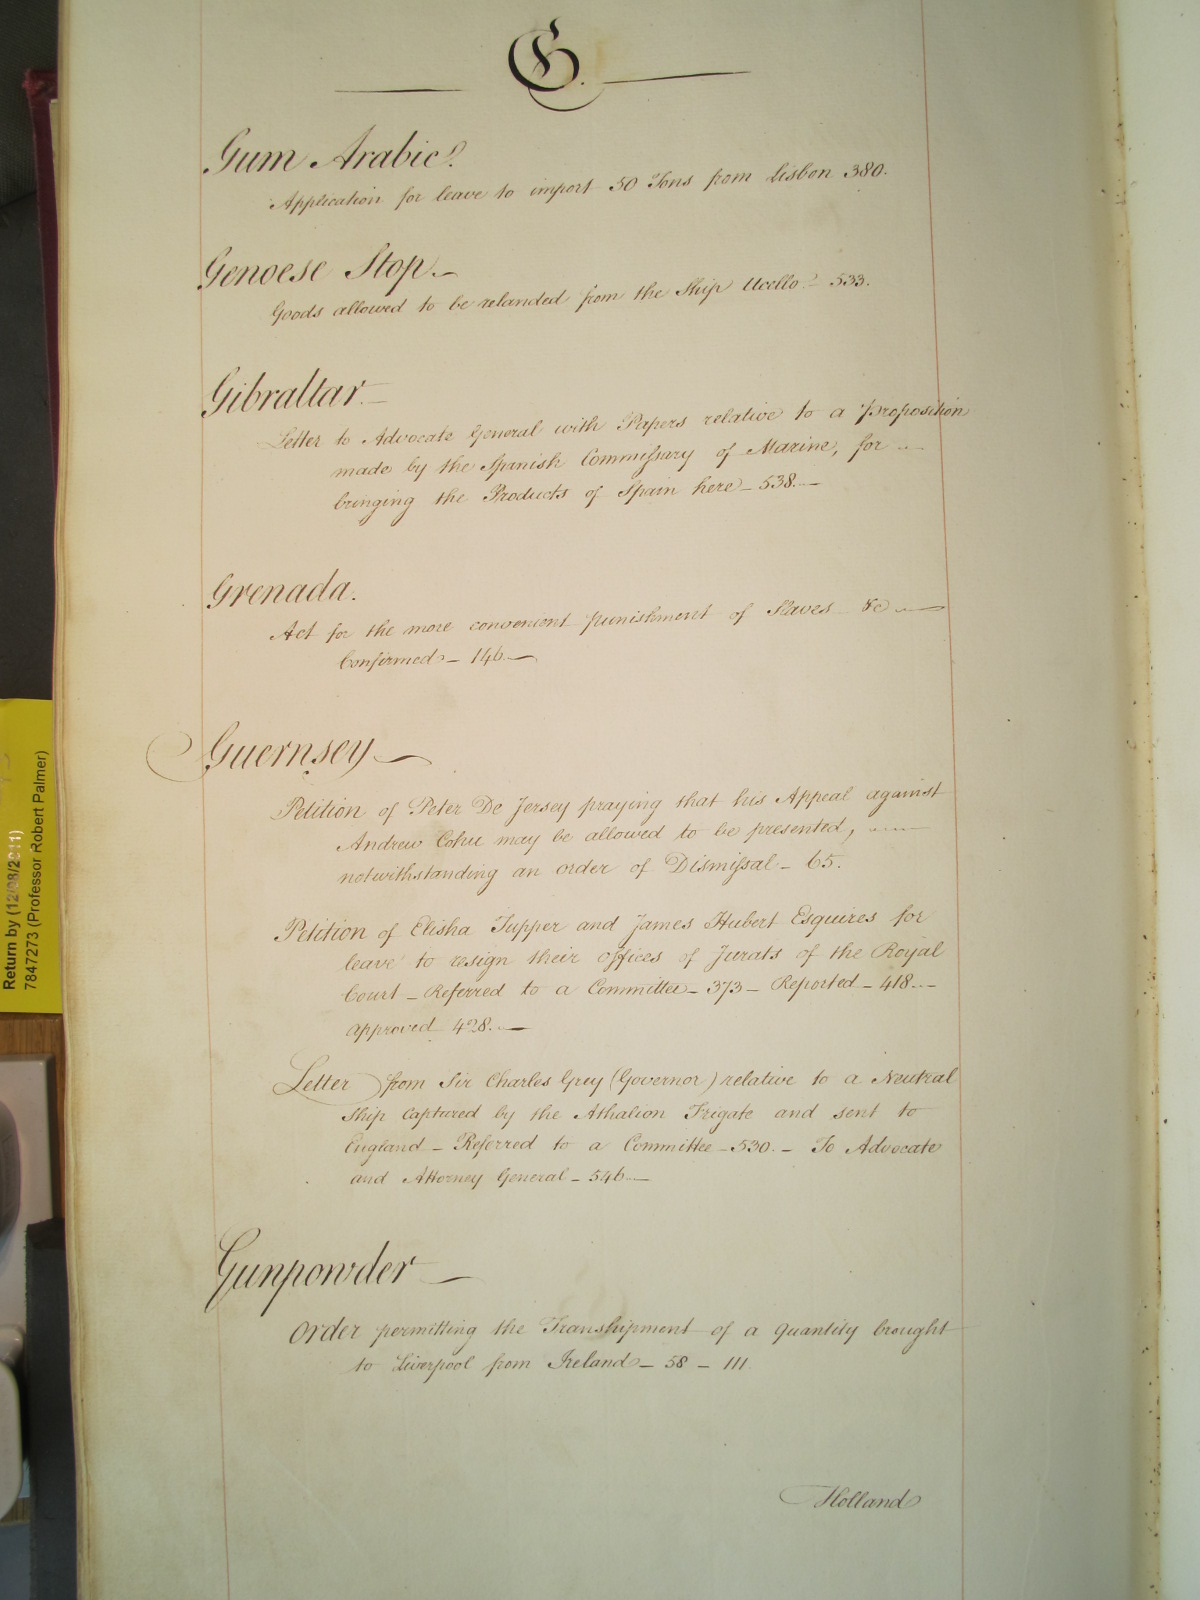 G.
Gum Arabic.
Application for leave to import 50 Tons from Lisbon 380.
Genoese Stop. —
Goods allowed to be relanded from the Ship Ucello — 533.
Gibraltar. —
Letter to Advocate General with Papers relative to a Proposition
made by the Spanish Commissary of Marine, for
bringing the Products of Spain here — 538. —
Grenada.
Act for the more convenient punishment of Slaves &c —
Confirmed — 146. —
Guernsey —
Petition of Peter De Jersey praying that his Appeal against
Andrew Cohu may be allowed to be presented,
notwithstanding an order of Dismissal — 65.
Petition of Elisha Tupper and James Hubert Esquires for
leave to resign their offices of Jurats of the Royal
Court — Referred to a Committee — 373 — Reported — 418. —
approved 428. —
Letter from Sir Charles Grey (Governor) relative to a Neutral
Ship captured by the Athalion Frigate and sent to
England — Referred to a Committee — 530. — To Advocate
and Attorney General — 546 —
Gunpowder —
Order permitting the Transhipment of a Quantity brought
to Liverpool from Ireland — 58 — 111.
Holland
Return by (12/08/2011)
7847273 (Professor Robert Palmer)